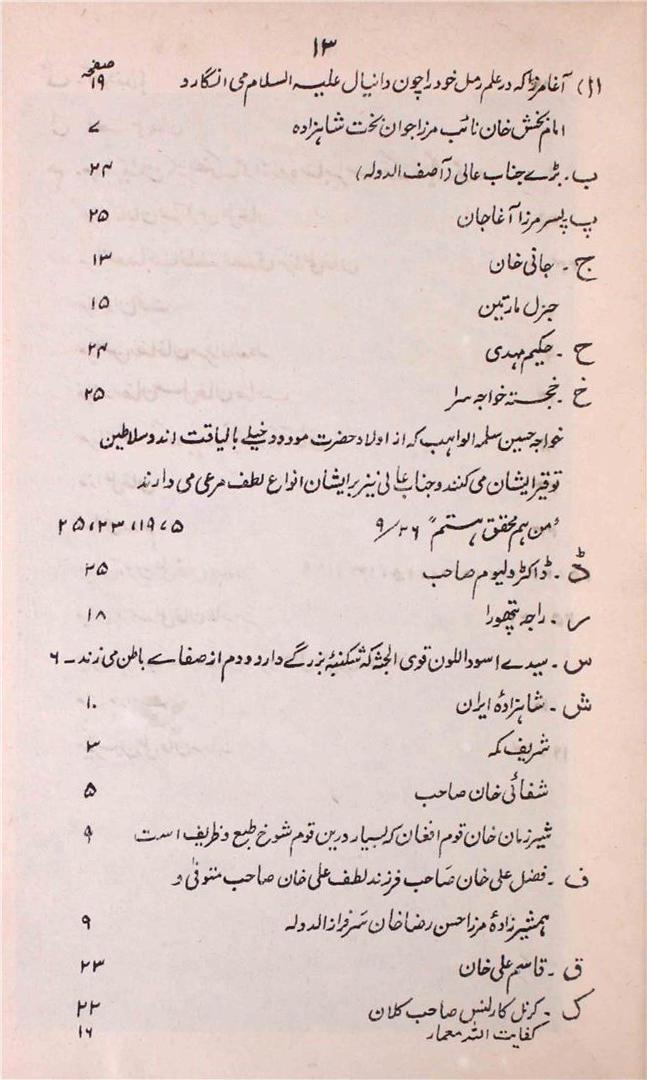 ۱۳
صفحہ
(۱) آغا مرزا کہ در علم رمل خود را چون دانیال علیہ السلام می انگارد ۱۹
امام بخش خان نائب مرزا جوان بخت شاہزادہ ۷
ب ۔ بڑے جناب عالی (آصف الدولہ) ۲۴
پ پسر مرزا آغا جان ۲۵
ج ۔ جانی خان ۱۳
جنرل مارتین ۱۵
ح ۔ حکیم مہدی ۲۴
خ ۔ خجستہ خواجہ سرا ۲۵
خواجہ حسین سلمہ الواہب کہ از اولاد حضرت مودود خیلے با لیاقت اند و سلاطین
توقیر ایشان می کنند و جناب عالی نیز بر ایشان انواع لطف مرعی می دارند
"من ہم محقق ہستم" ۹/۲۶ ۵، ۱۹، ۲۳، ۲۵
ڈ ۔ ڈاکٹر ولیوم صاحب ۲۵
ر ۔ راجہ پتھورا ۱۸
س ۔ سیدے اسود اللون قوی الجثہ کہ شکنبۂ بزرگے دارد و دم از صفاے باطن می زند ۔ ۶
ش ۔ شاہزادۂ ایران ۱۰
شریف مکہ ۳
شفائی خان صاحب ۵
شیر زمان خان قوم افغان کہ بسیار درین قوم شوخ طبع و ظریف است ۹
ف ۔ فضل علی خان صاحب فرزند لطف علی خان صاحب متوفیٰ و
ہمشیر زادۂ مرزا حسن رضا خان سرفراز الدولہ ۹
ق ۔ قاسم علی خان ۲۳
ک ۔ کرنل کارلنس صاحب کلان ۲۲
کفایت اللہ معمار ۱۶